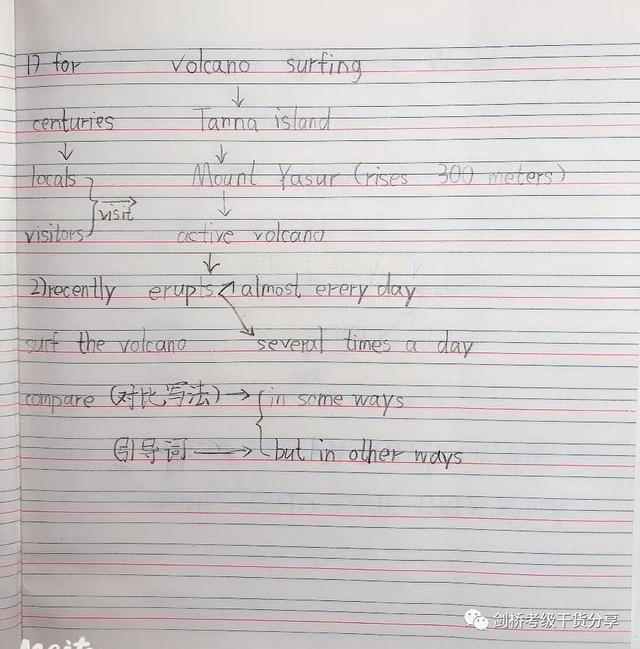 1) for volcano surfing
↓
centuries Tanna island
↓ ↓
locals Mount Yasur (rises 300 meters)
visit ↓
visitors active volcano
↓
2) recently erupts almost every day
surf the volcano several times a day
compare (对比写法) → in some ways
引导词 → but in other ways
剑桥考级干货分享